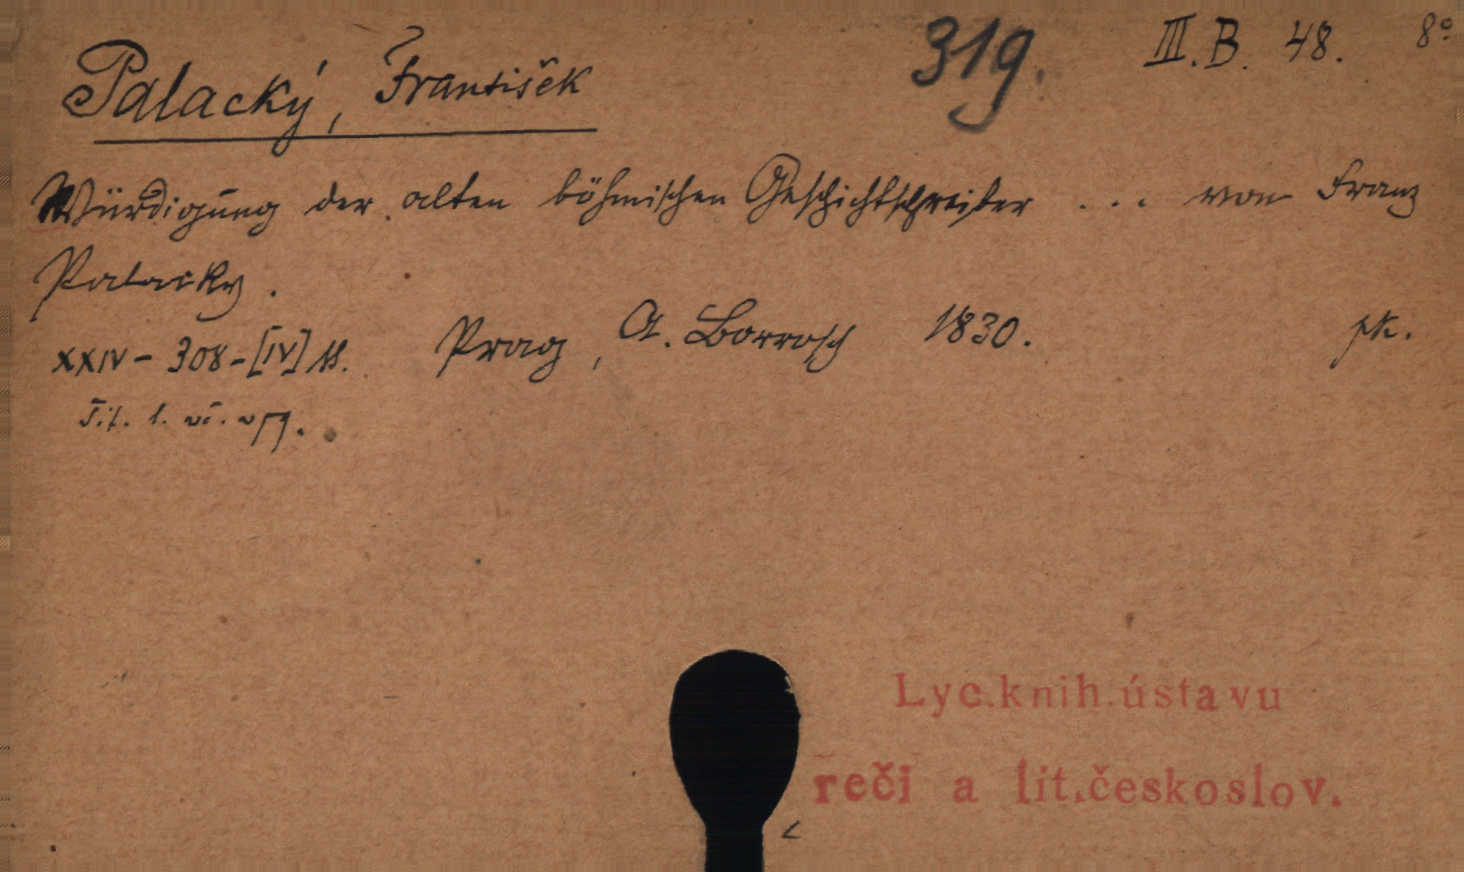 Palacký, František 319. III.B. 48. 8°
Würdigung der alten böhmischen Geschichtschreiber ... von Franz
Palacky.
XXIV - 308 - [IV] S. Prag, A. Borrosch 1830. pk.
Tit. l.
Lyc.knih.ústavu
řeči a lit.českoslov.